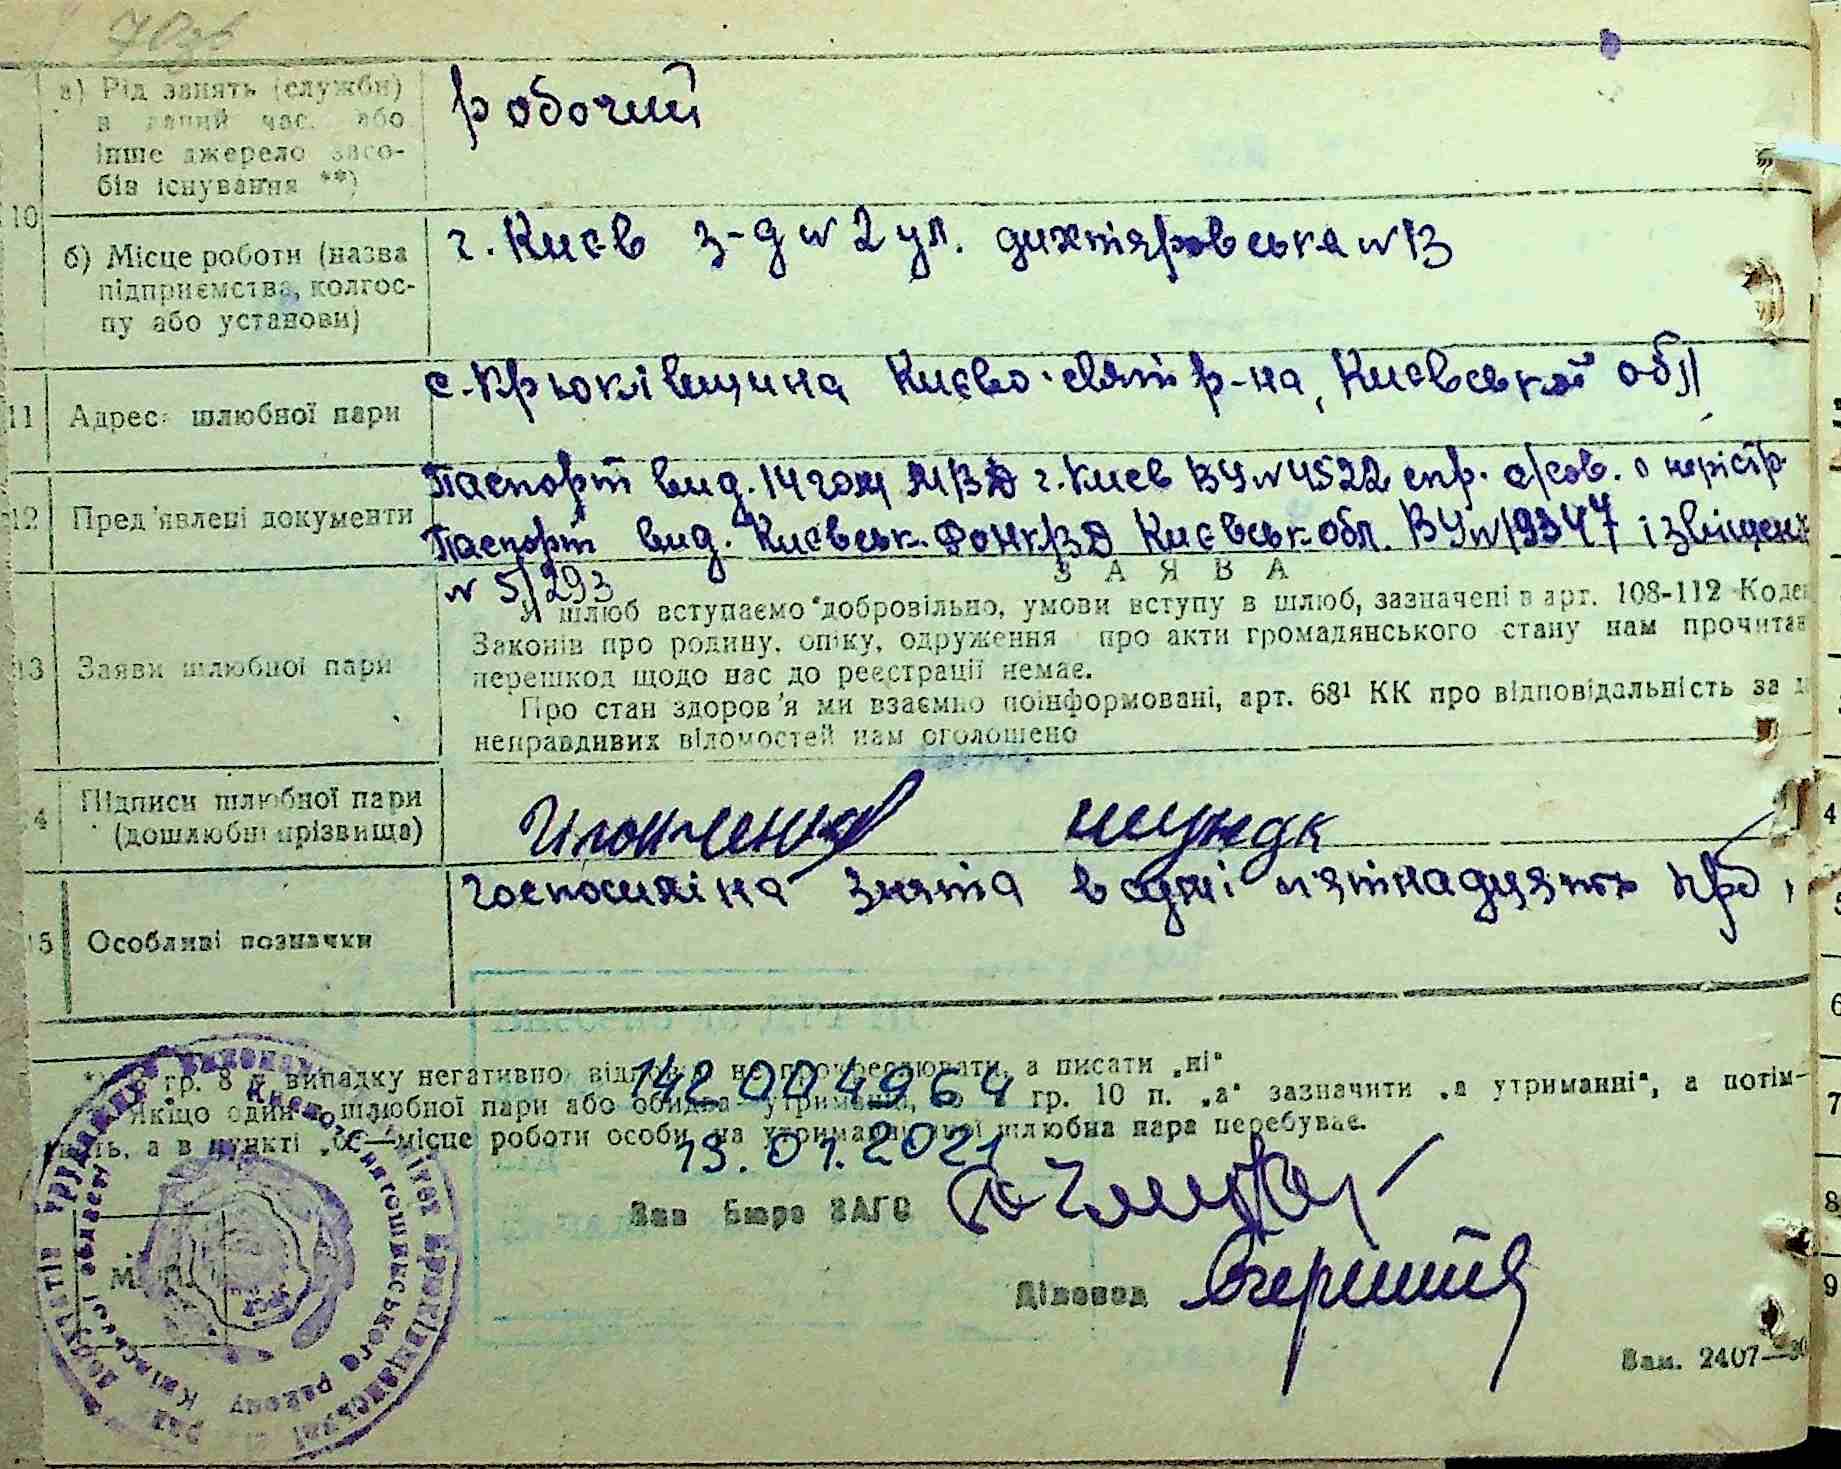 70зв
10
а) Рід занять (служби)
в даний час або
інше джерело засо-
бів існування **)
робочий
б) Місце роботи (назва
підприємства, колгос-
пу або установи)
г. Києв з-д №2 ул. дихтяровська №13
11
Адреса шлюбної пари
с. Крюківщина Києво-свят р-на, Киевської обл
12
Пред'явлені документи
Паспорт вид. 14 гом МВД г. Киев ВУ №4522 спр. с/сов.
Паспорт вид. Києвськ. Київськ обл. ВУ №19347 ізвіщен
№ 5/293
13
Заяви шлюбної пари
ЗАЯВА
У шлюб вступаємо добровільно, умови вступу в шлюб, зазначені в арт. 108-112 Коде
Законів про родину, опіку, одруження про акти громадянського стану нам прочита
перешкод щодо нас до реєстрації немає.
Про стан здоров'я ми взаємно поінформовані, арт. 68¹ КК про відповідальність за
неправдивих відомостей нам оголошено
4
Підписи шлюбної пари
(дошлюбні прізвища)
15
Особливі позначки
знята в сумі п'ятнадцять крб,
*) В гр. 8 у випадку негативно не прокреслювати, а писати „ні"
Якщо один шлюбної пари або обидва гр. 10 п. „а" зазначити „а утриманні", а потім-
а в пункті „б"—місце роботи особи, на утриманні шлюбна пара перебуває.
142 004964
Зав Бюро ЗАГС
Діловод
М.П.
Зам. 2407—
4
5
6
7
8
9